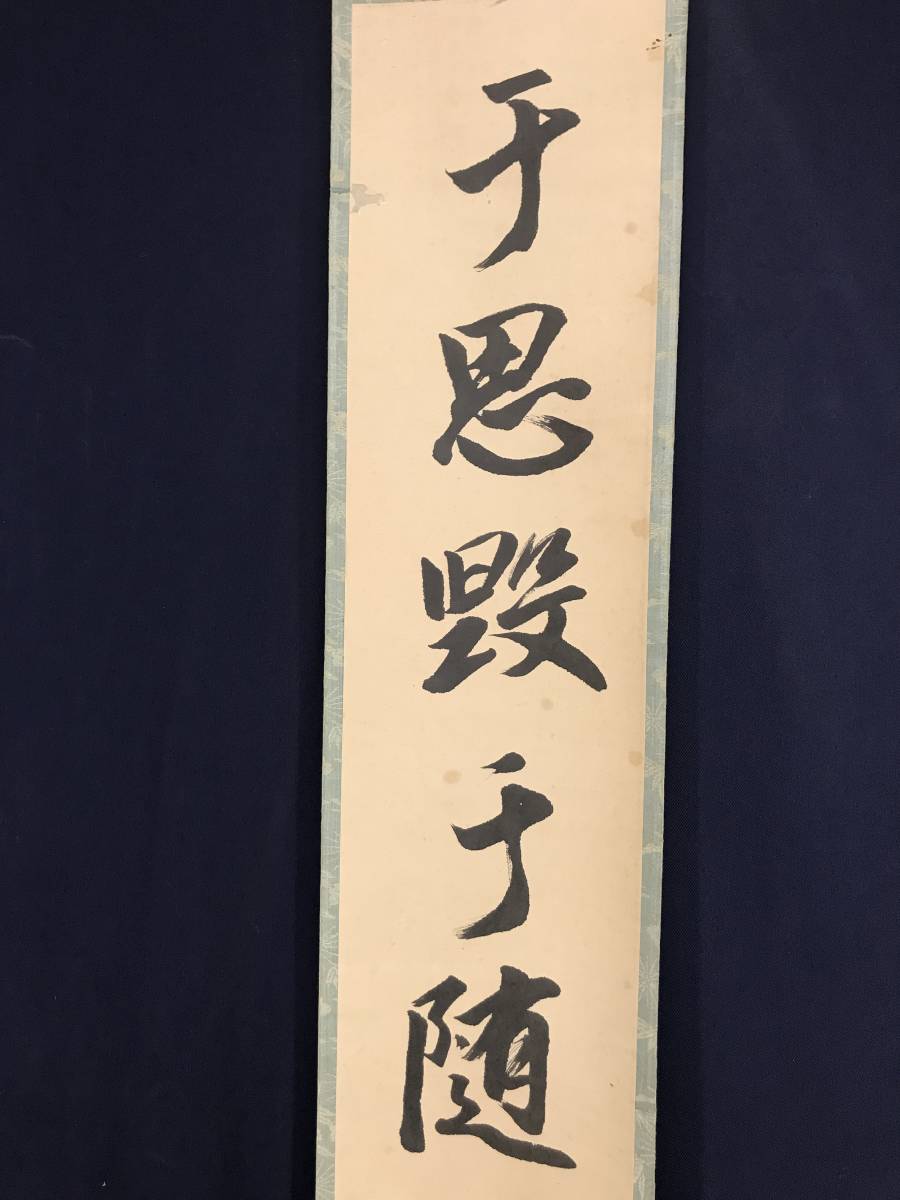 于思毀于随